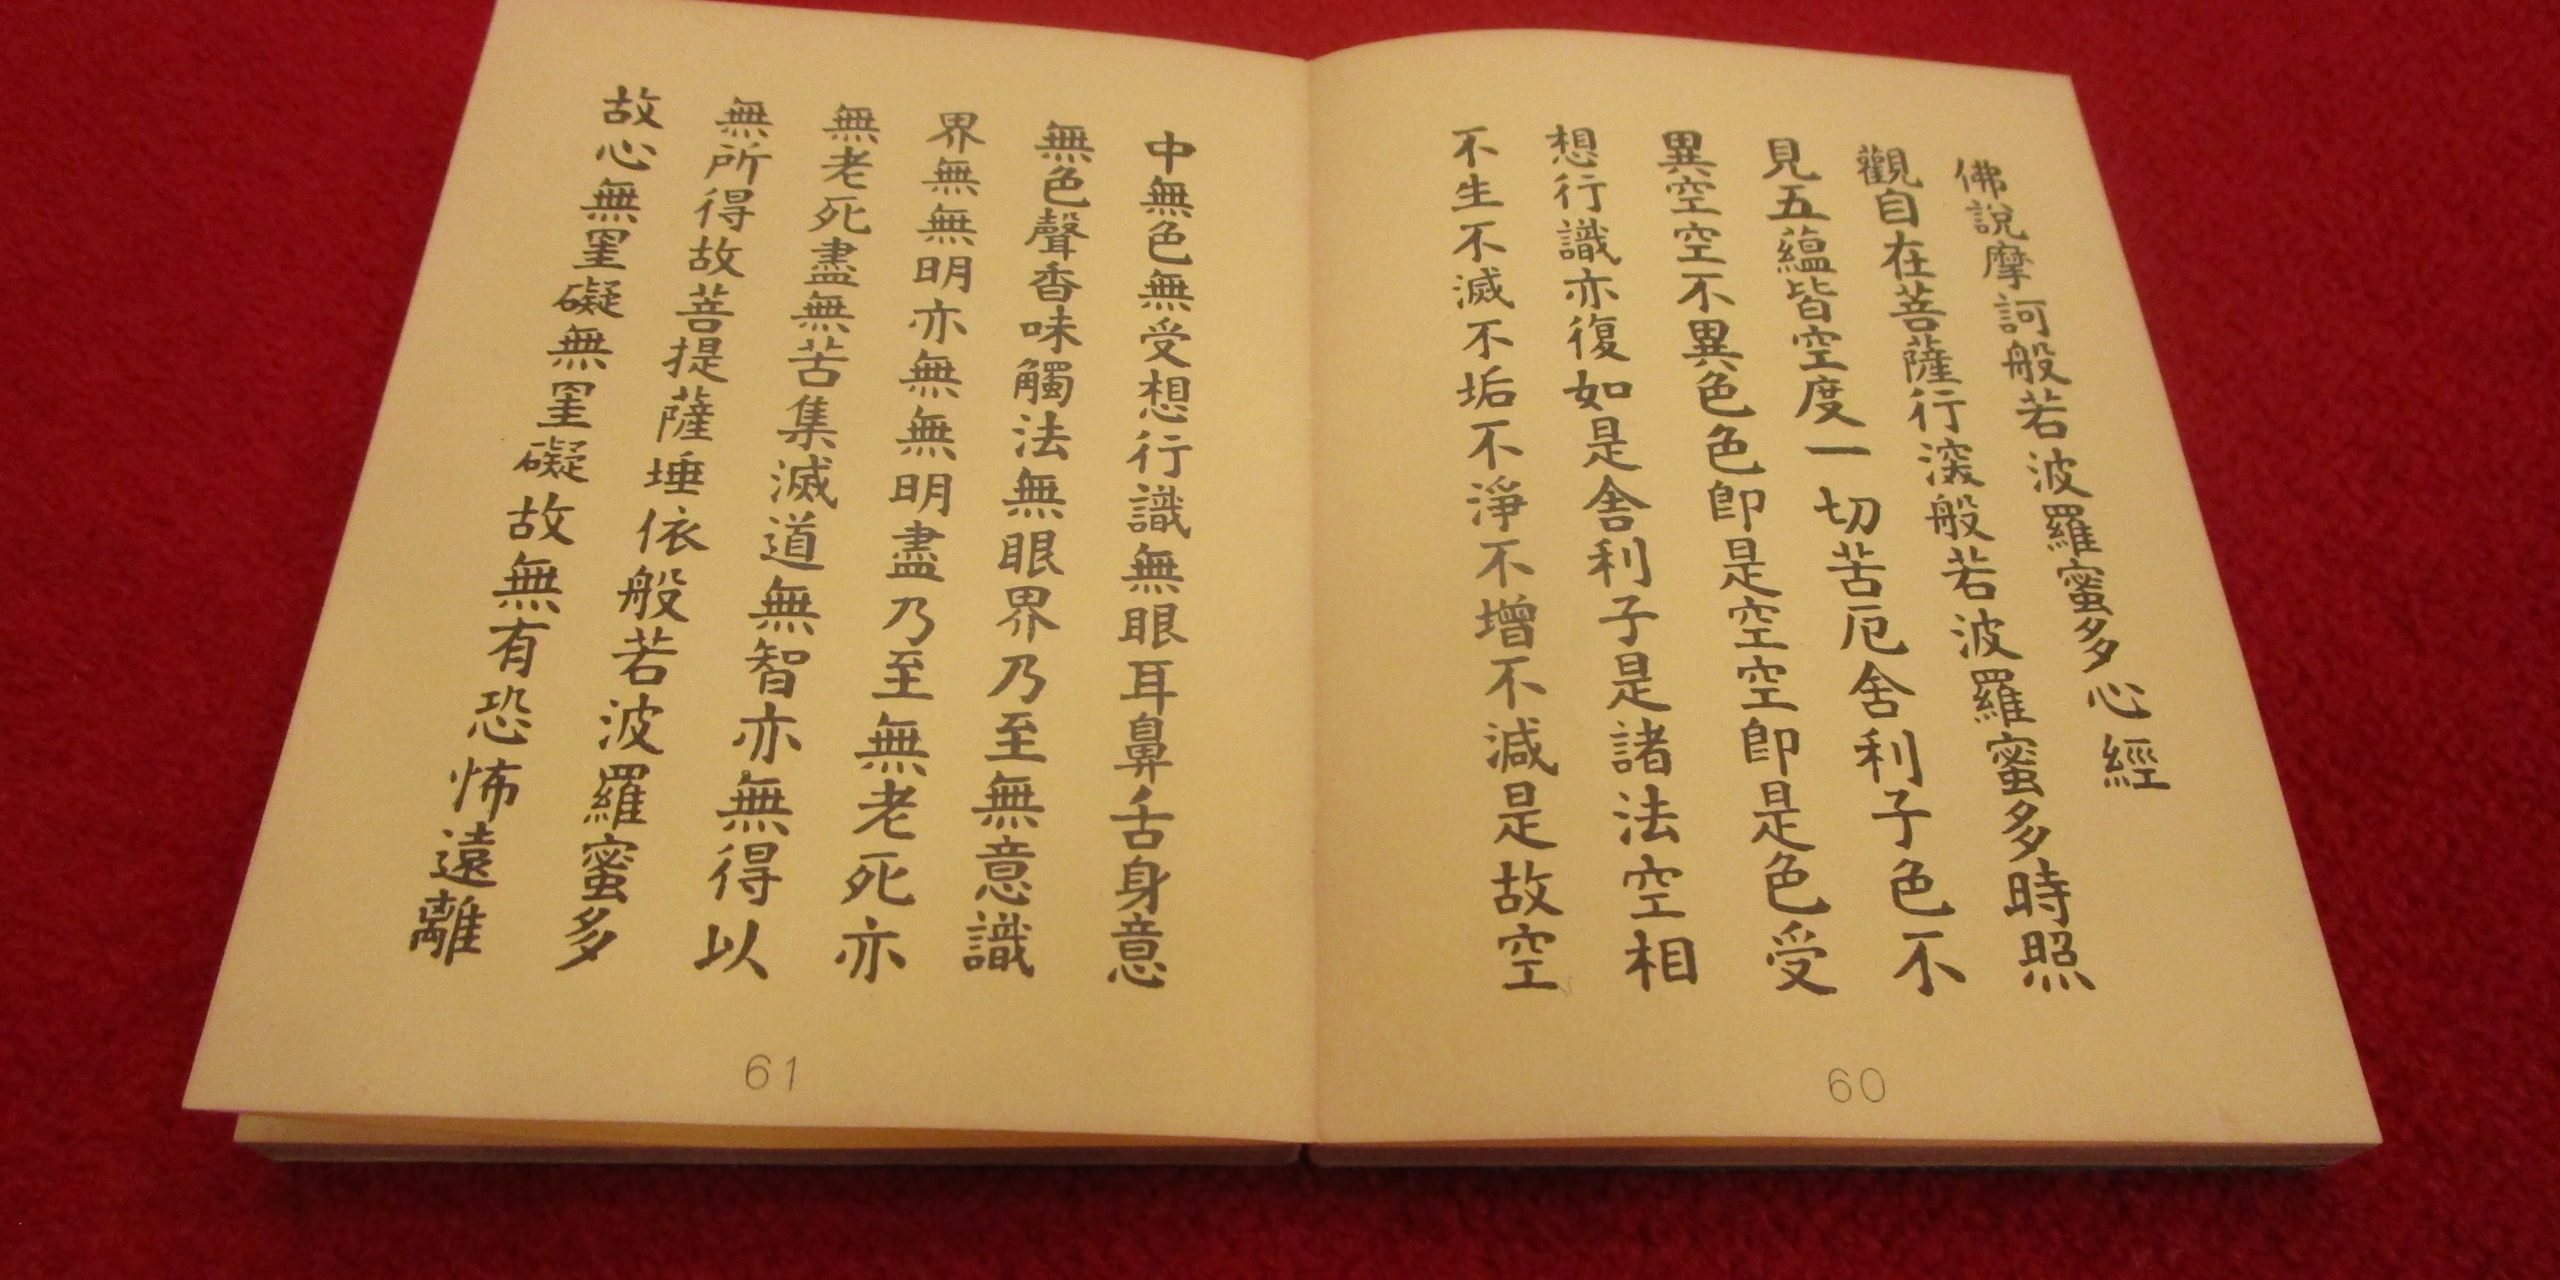 佛說摩訶般若波羅蜜多心經
觀自在菩薩行深般若波羅蜜多時照
見五蘊皆空度一切苦厄舍利子色不
異空空不異色色即是空空即是色受
想行識亦復如是舍利子是諸法空相
不生不滅不垢不淨不增不減是故空
60
中無色無受想行識無眼耳鼻舌身意
無色聲香味觸法無眼界乃至無意識
界無無明亦無無明盡乃至無老死亦
無老死盡無苦集滅道無智亦無得以
無所得故菩提薩埵依般若波羅蜜多
故心無罣礙無罣礙故無有恐怖遠離
61